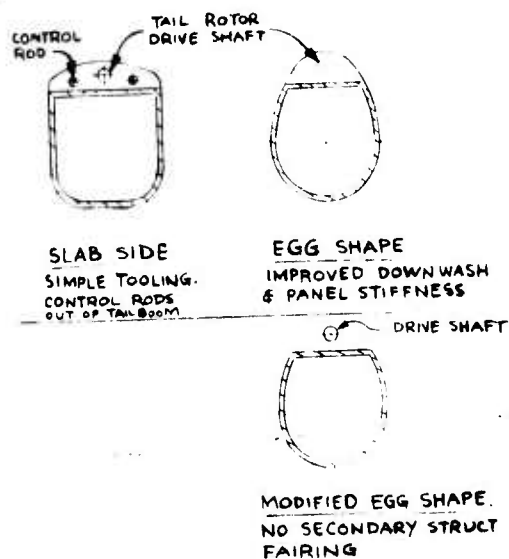 CONTROL
ROD
TAIL ROTOR
DRIVE SHAFT
SLAB SIDE
SIMPLE TOOLING.
CONTROL RODS
OUT OF TAILBOOM
EGG SHAPE
IMPROVED DOWNWASH
& PANEL STIFFNESS
DRIVE SHAFT
MODIFIED EGG SHAPE.
NO SECONDARY STRUCT
FAIRING